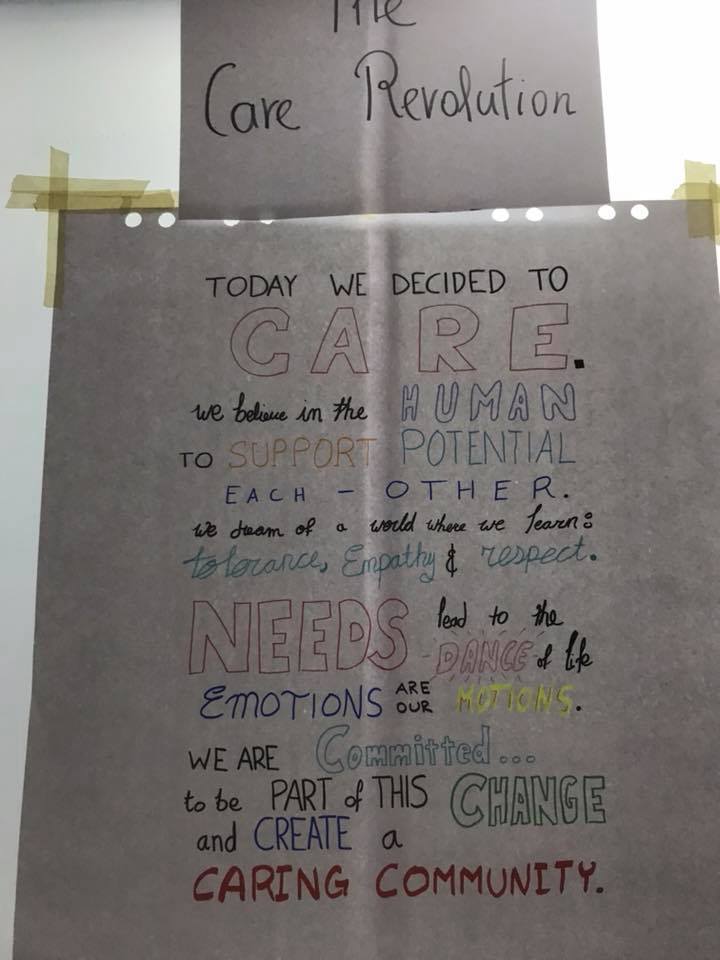 The
Care Revolution
TODAY WE DECIDED TO
CARE.
we believe in the HUMAN
TO SUPPORT POTENTIAL
EACH - OTHER.
we dream of a world where we learn:
tolerance, Empathy & respect.
NEEDS lead to the
DANCE of life
EMOTIONS ARE OUR MOTIONS.
WE ARE Committed...
to be PART of THIS CHANGE
and CREATE a
CARING COMMUNITY.